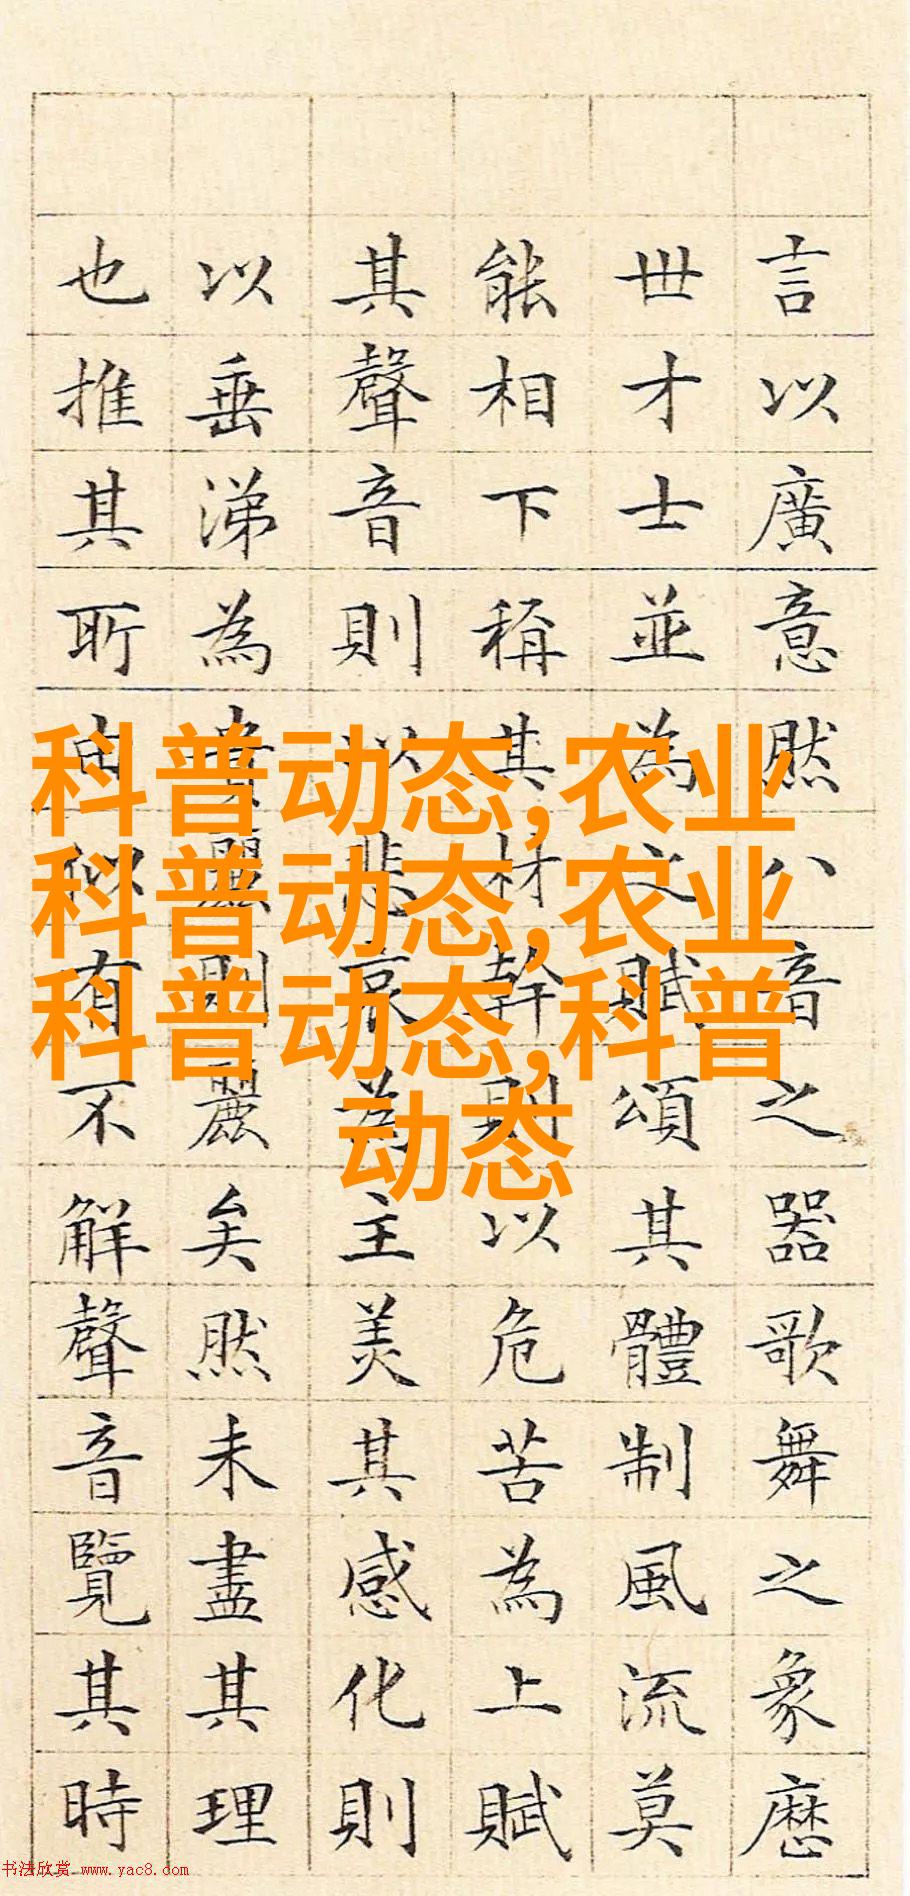 言以廣意然八音之器歌舞之象歷
世才士並為之賦頌其體制風流莫
能相下稱其材幹則以危苦為上賦
其聲音則以悲哀為主美其感化則
以垂涕為貴麗則麗矣然未盡其理
也推其所由似有不解聲音覽其時
科普动态,农业
科普动态,农业
科普动态,科普
动态
书法欣赏 www.yac8.com